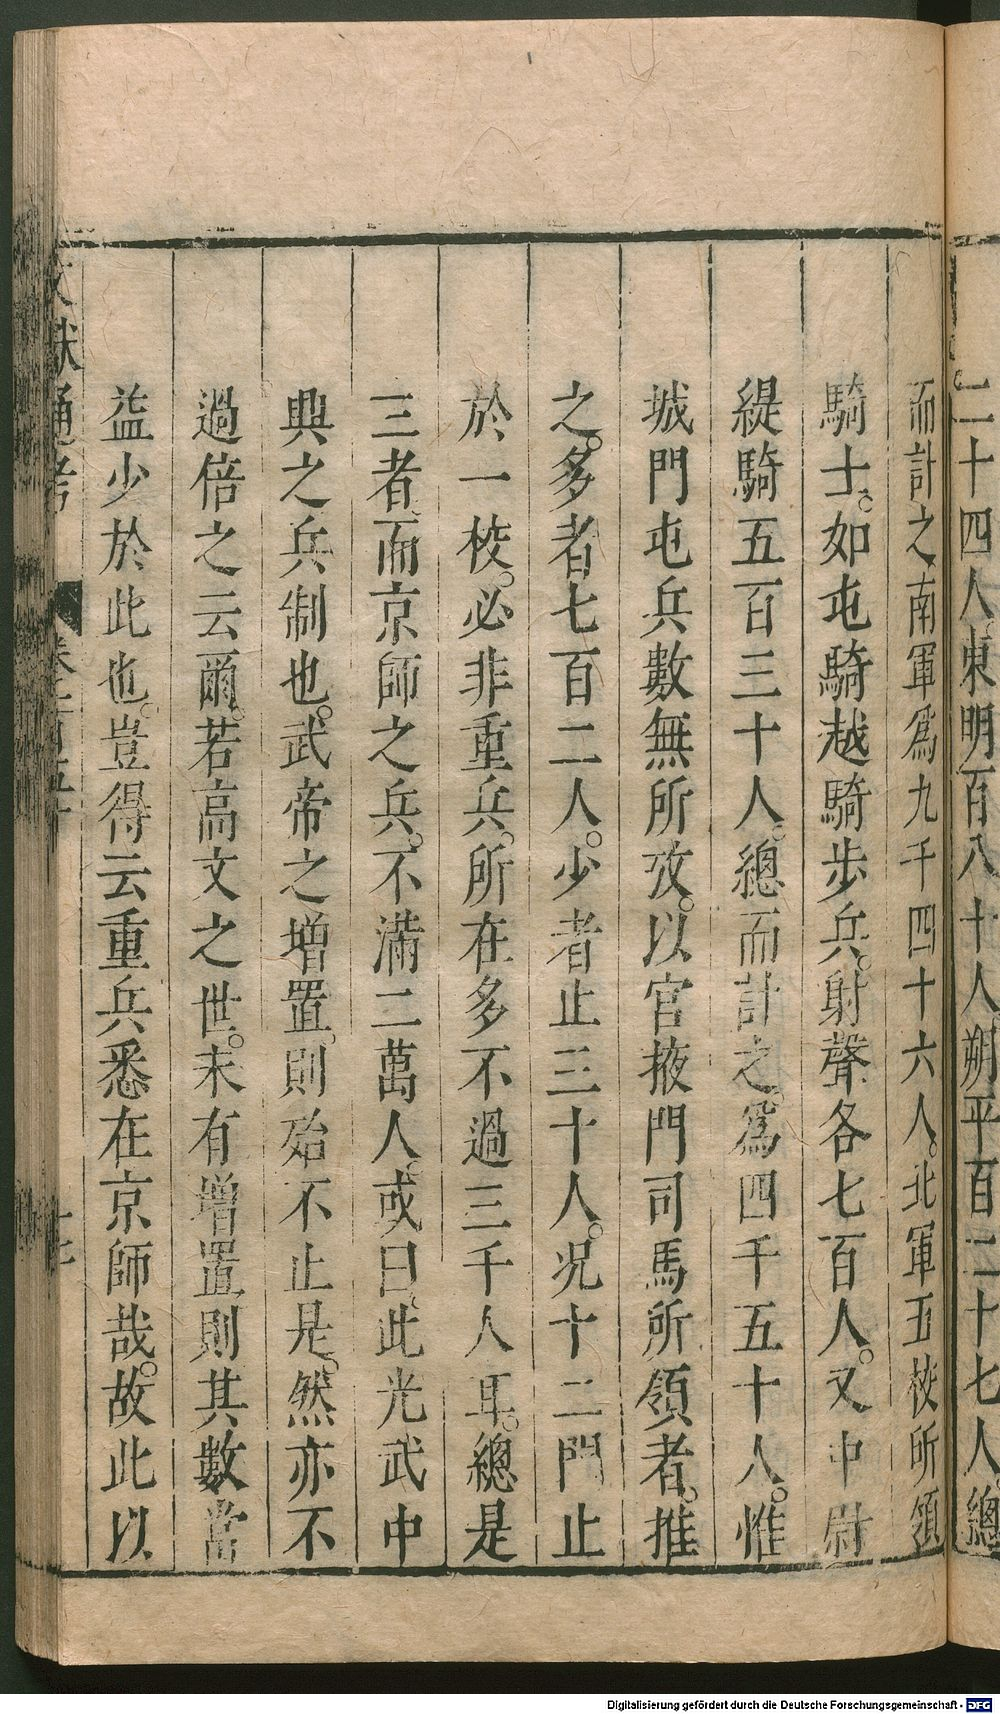 二十四人東明百八十人朔平百二十七人總
而計之南軍爲九千四十六人北軍五校所領
騎士如屯騎越騎步兵射聲各七百人又中尉
緹騎五百三十人總而計之爲四千五十人惟
城門屯兵數無所攷以官掖門司馬所領者推
之多者七百二人少者止三十人况十二門止
於一校必非重兵所在多不過三千人耳總是
三者而京師之兵不滿二萬人或曰此光武中
興之兵制也武帝之增置則殆不止是然亦不
過倍之云爾若高文之世未有增置則其數當
益少於此也豈得云重兵悉在京師哉故此以
文獻通考
Digitalisierung gefördert durch die Deutsche Forschungsgemeinschaft - DFG